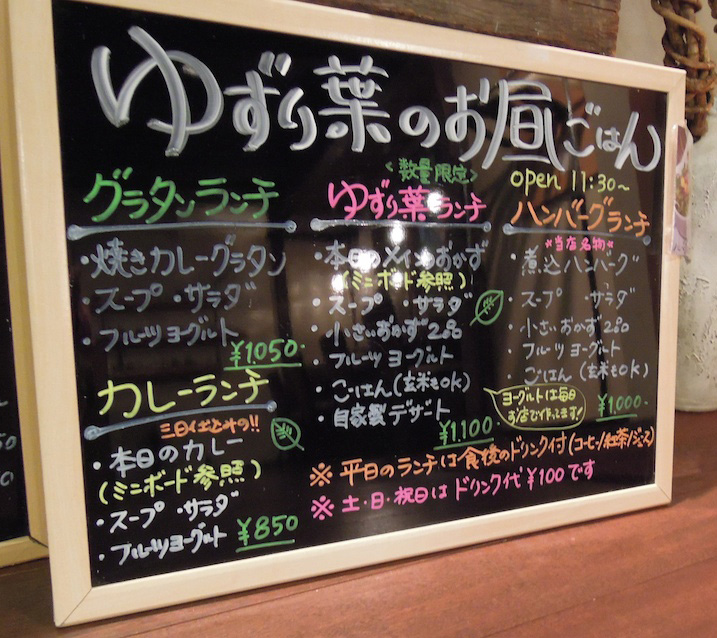 ゆずり葉のお昼ごはん
open 11:30~
グラタンランチ
・焼きカレーグラタン
・スープ ・サラダ
・フルーツヨーグルト
¥1050
カレーランチ
・本日のカレー
(ミニボード参照)
・スープ ・サラダ
・フルーツヨーグルト
¥850
<数量限定>
ゆずり葉ランチ
・本日のメインおかず
(ミニボード参照)
・スープ ・サラダ
・小さいおかず2品
・フルーツヨーグルト
・ごはん(玄米もOK)
・自家製デザート
¥1.100
ハンバーグランチ
*当店名物*
・煮込ハンバーグ
・スープ ・サラダ
・小さいおかず2品
・フルーツヨーグルト
・ごはん(玄米もOK)
ヨーグルトは毎日
お店で作ってます!
¥1,000
※ 平日のランチは食後のドリンク付(コーヒー/紅茶/ジュース)
※ 土・日・祝日はドリンク代¥100です